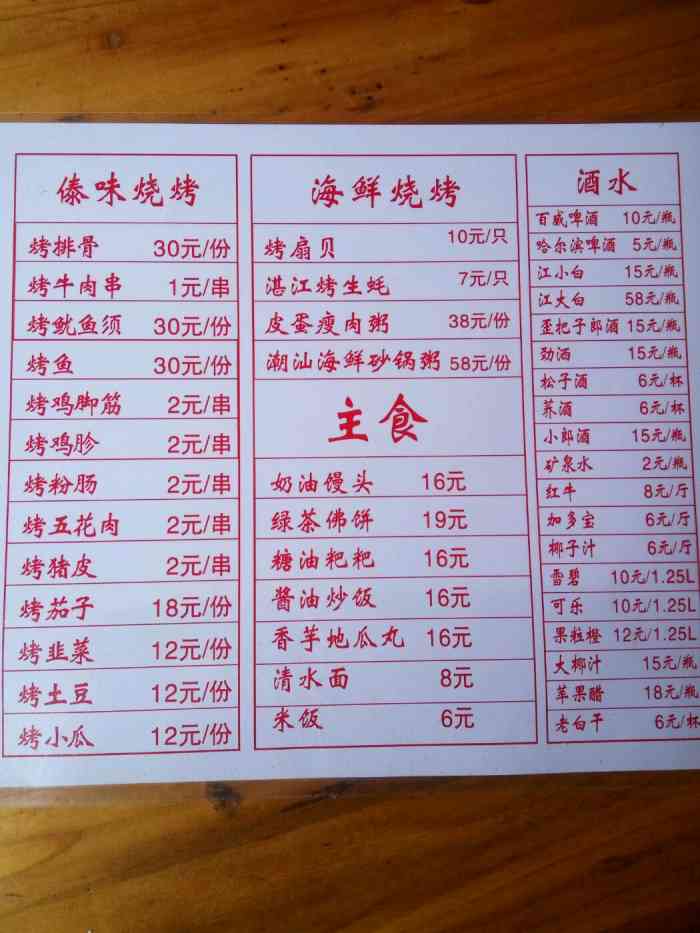 傣味烧烤
烤排骨 30元/份
烤牛肉串 1元/串
烤鱿鱼须 30元/份
烤鱼 30元/份
烤鸡脚筋 2元/串
烤鸡胗 2元/串
烤粉肠 2元/串
烤五花肉 2元/串
烤猪皮 2元/串
烤茄子 18元/份
烤韭菜 12元/份
烤土豆 12元/份
烤小瓜 12元/份
海鲜烧烤
烤扇贝 10元/只
湛江烤生蚝 7元/只
皮蛋瘦肉粥 38元/份
潮汕海鲜砂锅粥 58元/份
主食
奶油馒头 16元
绿茶佛饼 19元
糖油粑粑 16元
酱油炒饭 16元
香芋地瓜丸 16元
清水面 8元
米饭 6元
酒水
百威啤酒 10元/瓶
哈尔滨啤酒 5元/瓶
江小白 15元/瓶
江大白 58元/瓶
歪把子郎酒 15元/瓶
劲酒 15元/瓶
松子酒 6元/杯
荞酒 6元/杯
小郎酒 15元/瓶
矿泉水 2元/瓶
红牛 8元/厅
加多宝 6元/厅
椰子汁 6元/厅
雪碧 10元/1.25L
可乐 10元/1.25L
果粒橙 12元/1.25L
大椰汁 15元/瓶
苹果醋 18元/瓶
老白干 6元/杯